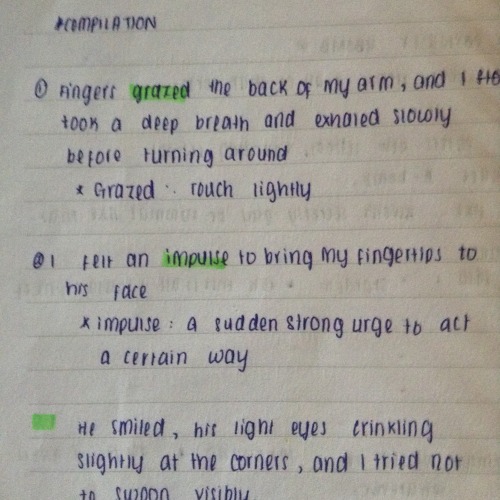 *COMPILATION
① Fingers grazed the back of my arm, and I
took a deep breath and exhaled slowly
before turning around
* Grazed : touch lightly
② I felt an impulse to bring my fingertips to
his face
* impulse : a sudden strong urge to act
a certain way
He smiled, his light eyes crinkling
slightly at the corners, and I tried not
to swoon visibly